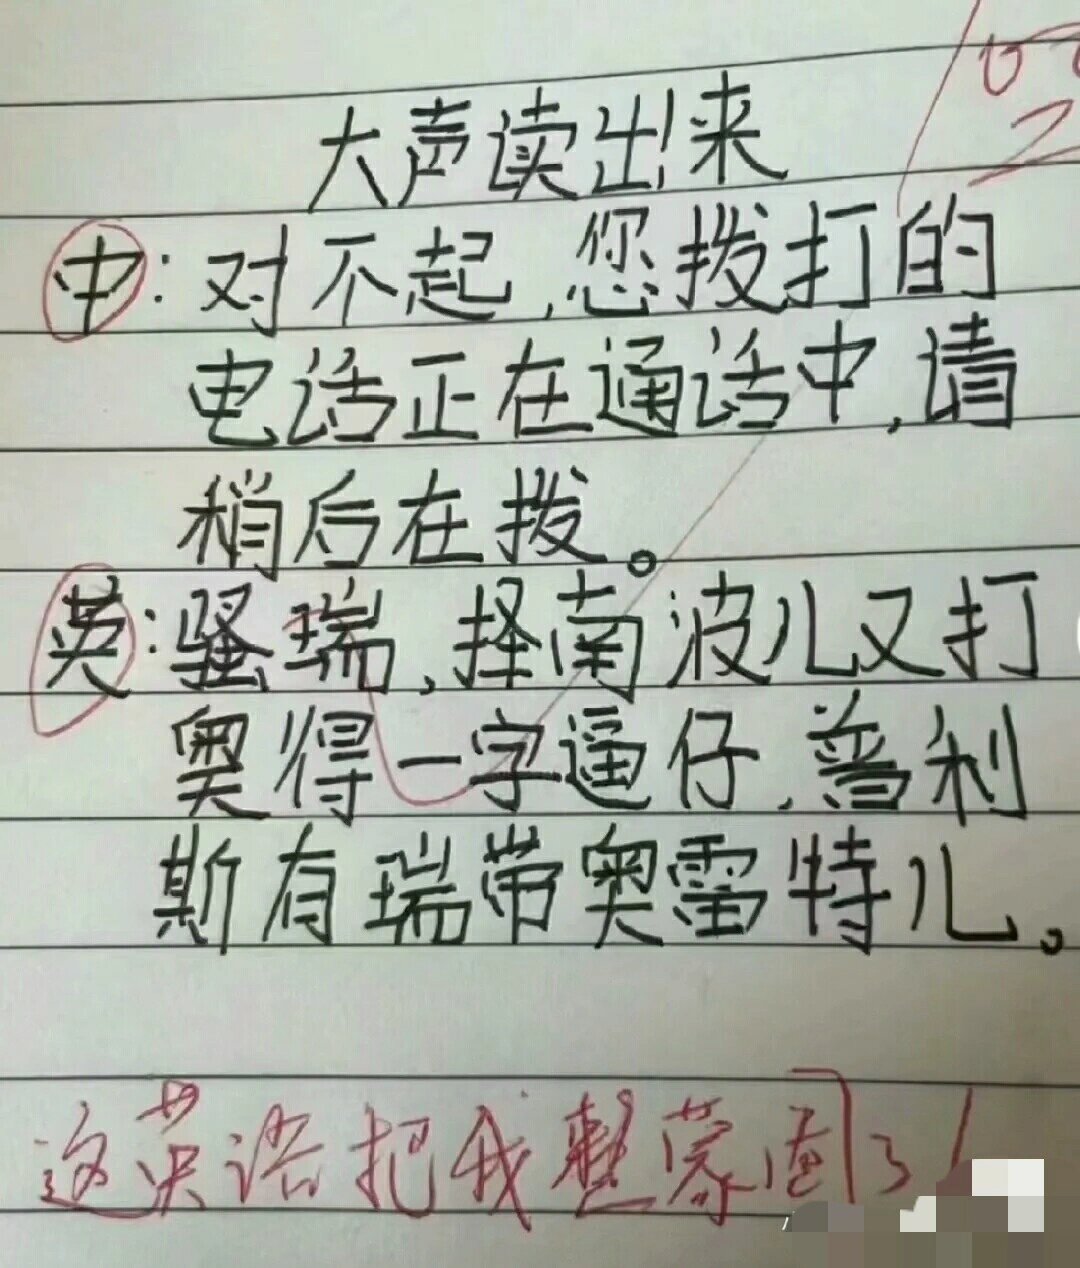 100
大声读出来
中:对不起,您拨打的
电话正在通话中,请
稍后在拨。
英:骚瑞,择南波儿又打
奥得一字逼仔,普利
斯有瑞带奥雷特儿。
这英语把我整蒙圈了!